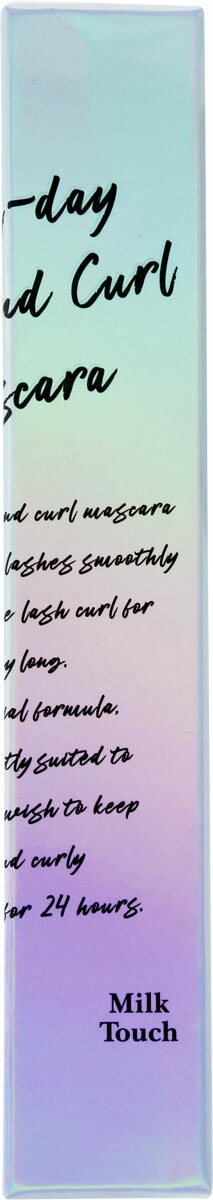 -day
nd Curl
scara
nd curl mascara
lashes smoothly
e lash curl for
y long.
al formula,
tly suited to
wish to keep
nd curly
for 24 hours.
Milk
Touch